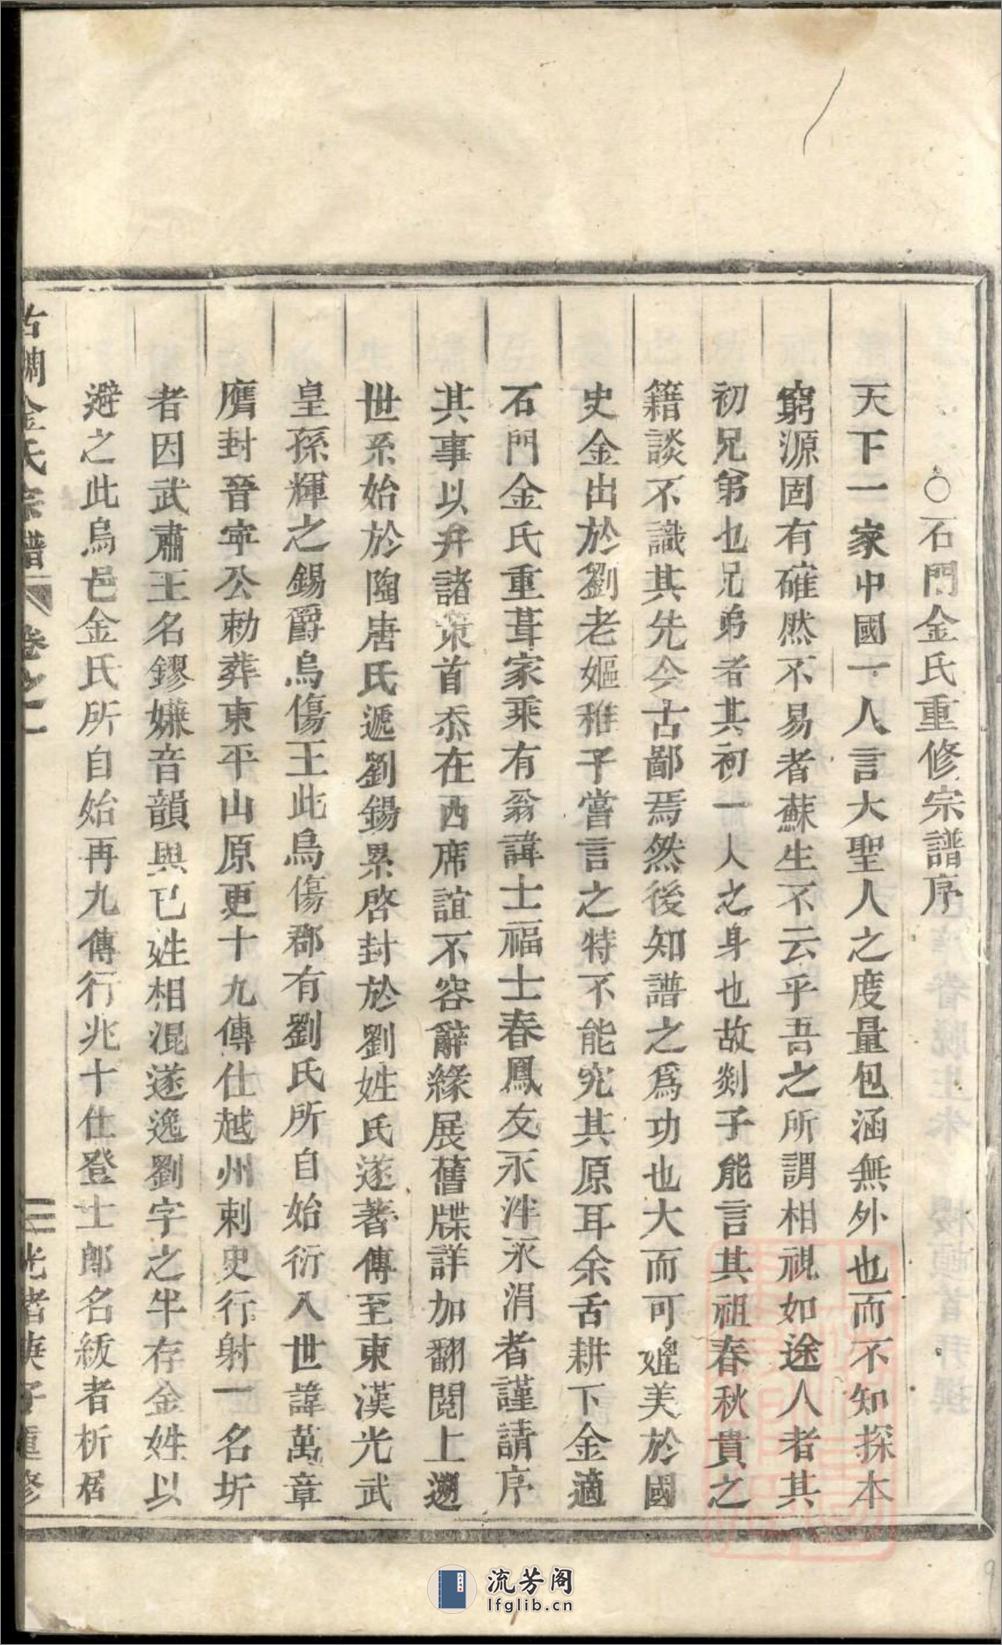 ○石門金氏重修宗譜序
天下一家中國一人言大聖人之度量包涵無外也而不知探本
窮源固有確然不易者蘇生不云乎吾之所謂相視如途人者其
初兄弟也兄弟者其初一人之身也故剡子能言其祖春秋貴之
籍談不識其先今古鄙焉然後知譜之為功也大而可媲美於國
史金出於劉老嫗稚子嘗言之特不能究其原耳余舌耕下金適
石門金氏重葺家乘有翁諱士福士春鳳友永泮永涓者謹請序
其事以弁諸策首忝在西席誼不容辭緣展舊牒詳加翻閱上遡
世系始於陶唐氏遞劉錫累啓封於劉姓氏遂著傳至東漢光武
皇孫輝之錫爵烏傷王此烏傷郡有劉氏所自始衍入世諱萬章
膺封晉寕公勅葬東平山原更十九傳仕越州刺史行射一名圻
者因武肅王名鏐嫌音韻與已姓相混遂逸劉字之半存金姓以
避之此烏邑金氏所自始再九傳行兆十仕登士郎名紱者析居
古閫金氏宗譜 卷之一 三 光緒庚子重修
流芳阁
lfglib.cn